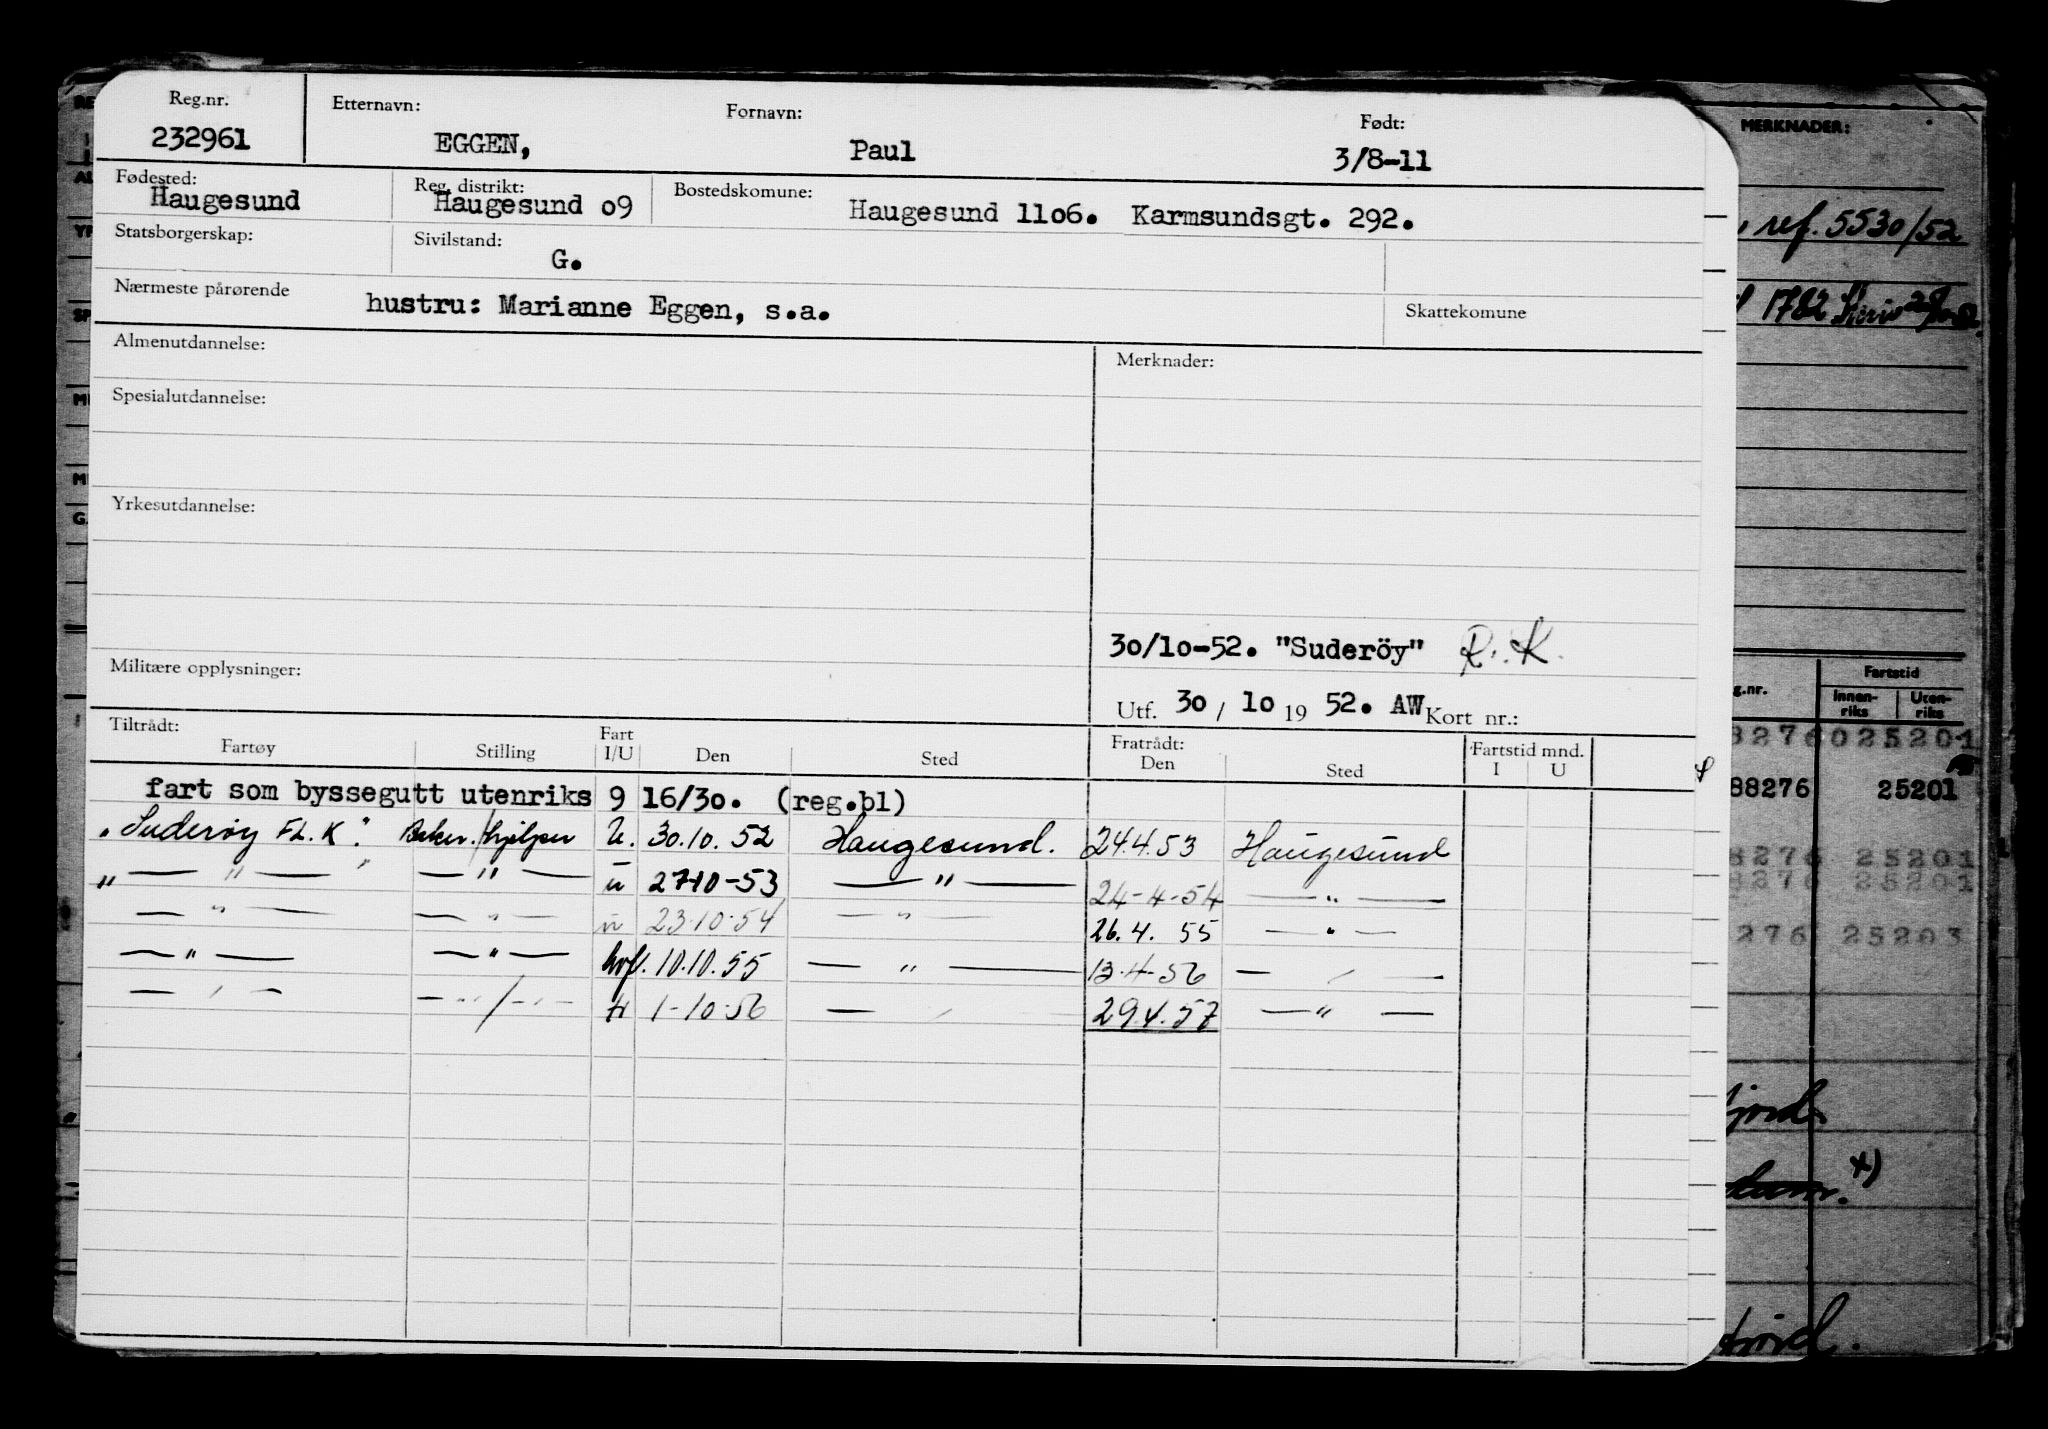 Reg.nr. Etternavn: Fornavn: Født:
232961 EGGEN, Paul 3/8-11
Fødested: Reg. distrikt: Bostedskomune:
Haugesund Haugesund o9 Haugesund 11o6. Karmsundsgt. 292.
Statsborgerskap: Sivilstand:
G.
Nærmeste pårørende hustru: Marianne Eggen, s.a. Skattekomune
Almenutdannelse: Merknader:
Spesialutdannelse:
Yrkesutdannelse:
30/10-52. "Suderöy" R.K.
Militære opplysninger:
Utf. 30 / 10 19 52. AW Kort nr.:
Tiltrådt: Fart Fratrådt: Fartstid mnd.
Fartøy Stilling I/U Den Sted Den Sted I U
fart som byssegutt utenriks 9 16/30. (reg.bl)
"Suderøy FL.K". U. 30.10.52 Haugesund. 24.4.53 Haugesund
" — " — " — " — u 27-10-53 — " — 24-4-54 — " —
— " — — " — u 23-10-54 — " — 26.4. 55 — " —
— " — — " — hvf. 10.10.55 — " — 13-4-56 — " —
— " — 1-10-56 — " — 29.4.57 — " —
MERKNADER:
ref. 5530/52
1782
g.nr. Fartstid
Innen-riks Uten-riks
8276025201
88276 25201
8276 25201
8276 25201
276 25203
x)